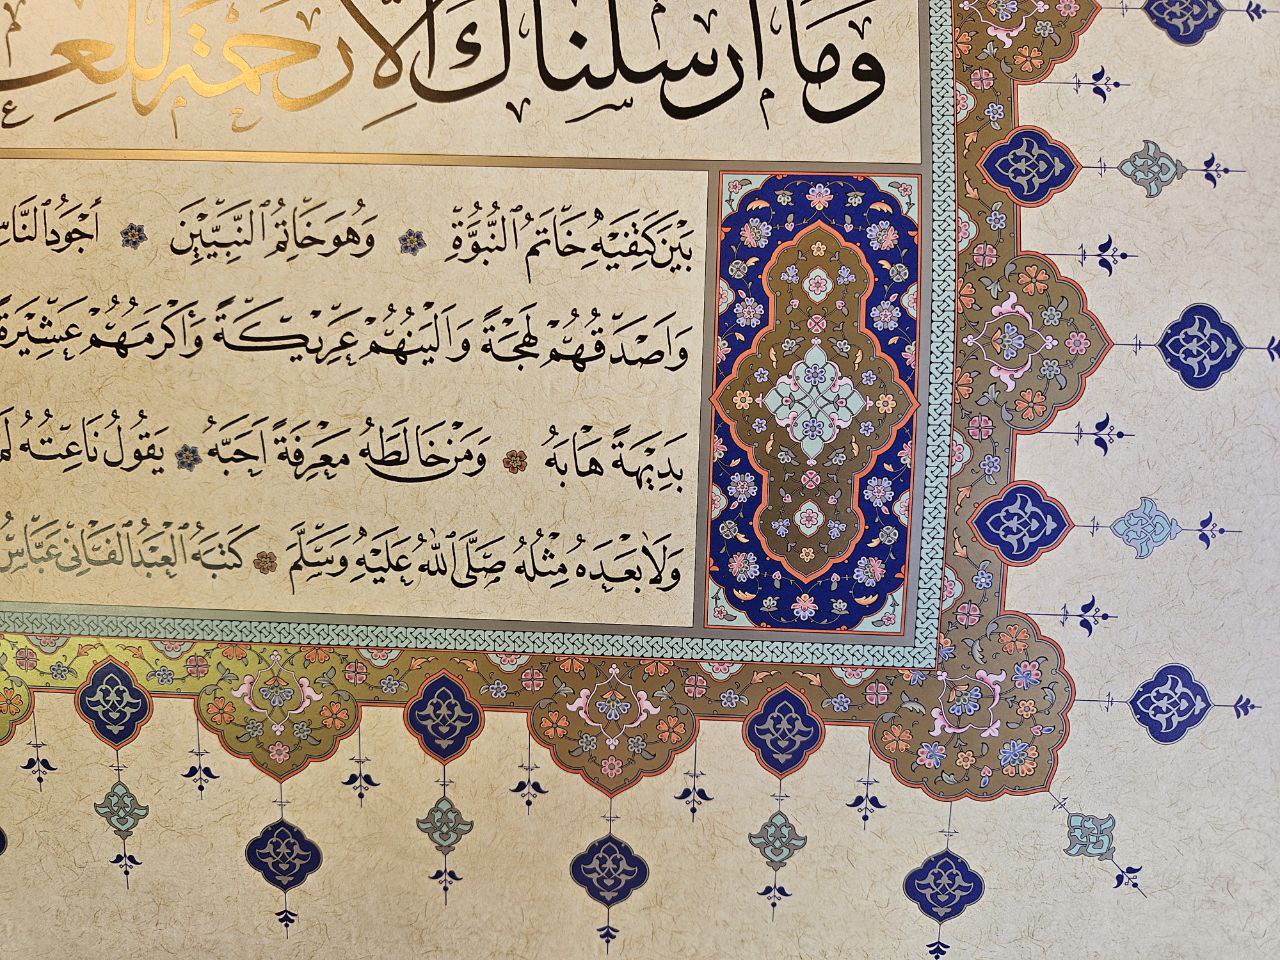 وَمَا أَرْسَلْنَاكَ إِلَّا رَحْمَةً
بَيْنَ كَتِفَيْهِ خَاتَمُ النُّبُوَّةِ وَهُوَ خَاتَمُ النَّبِيِّينَ أَجْوَدُ النَّاسِ
وَأَصْدَقُهُمْ لَهْجَةً وَأَلْيَنُهُمْ عَرِيكَةً وَأَكْرَمُهُمْ عَشِيرَةً
بَدِيهَةً هَابَهُ وَمَنْ خَالَطَهُ مَعْرِفَةً أَحَبَّهُ يَقُولُ نَاعِتُهُ
وَلَا بَعْدَهُ مِثْلَهُ صَلَّى اللهُ عَلَيْهِ وَسَلَّمَ كَتَبَهُ الْعَبْدُ الْفَانِي عَبَّاسُ